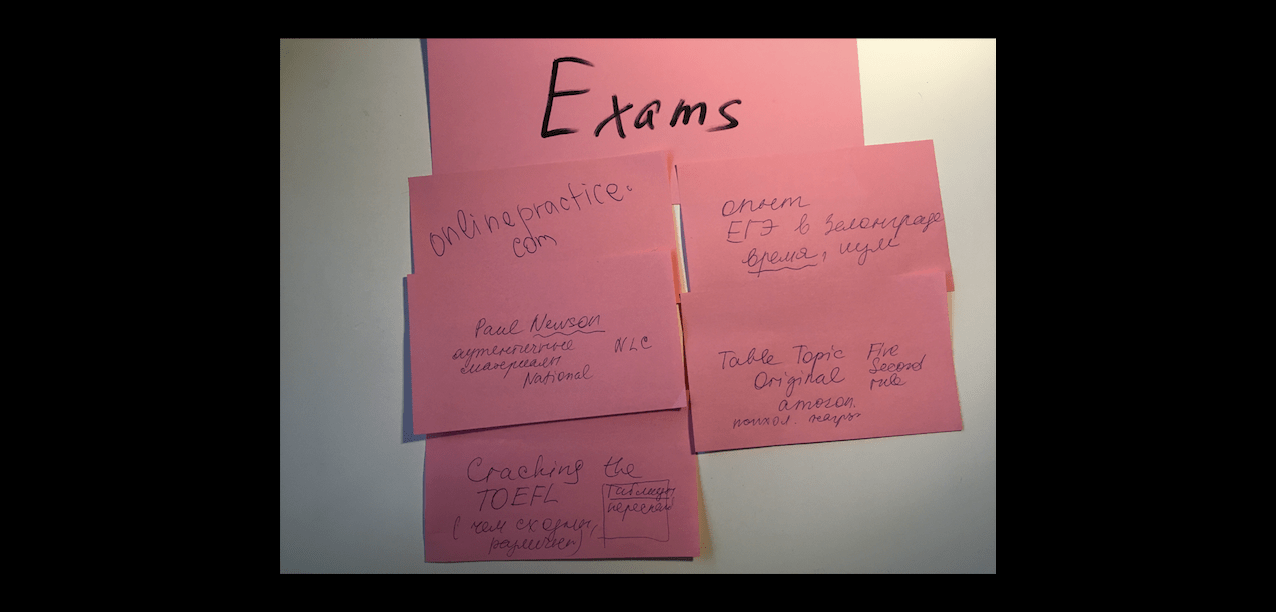 Exams
onlinepractice.
com
опыт
ЕГЭ в Зеленграде
время, шум
Paul Newson
аутентичные
материалы
National
NLC
Table Topic
Original
amazon.
психол. нагр.
Five
Second
rule
Cracking the
TOEFL
(чем сходны,
различен)
таблицы